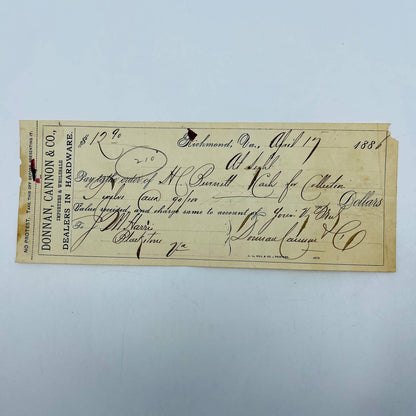 NO PROTEST. TAKE THIS OFF BEFORE PRESENTING IT.
DONNAN, CANNON & CO.,
IMPORTERS & WHOLESALE
DEALERS IN HARDWARE.
$12.90 Richmond, Va., April 17 1886
210 At Sight
Pay to the order of H C Burnett Cash for Collection
Twelve 90/100 Dollars
Value received, and charge same to account of
To J. W. Harris Donnan Cannon & Co
Blackstone
Va